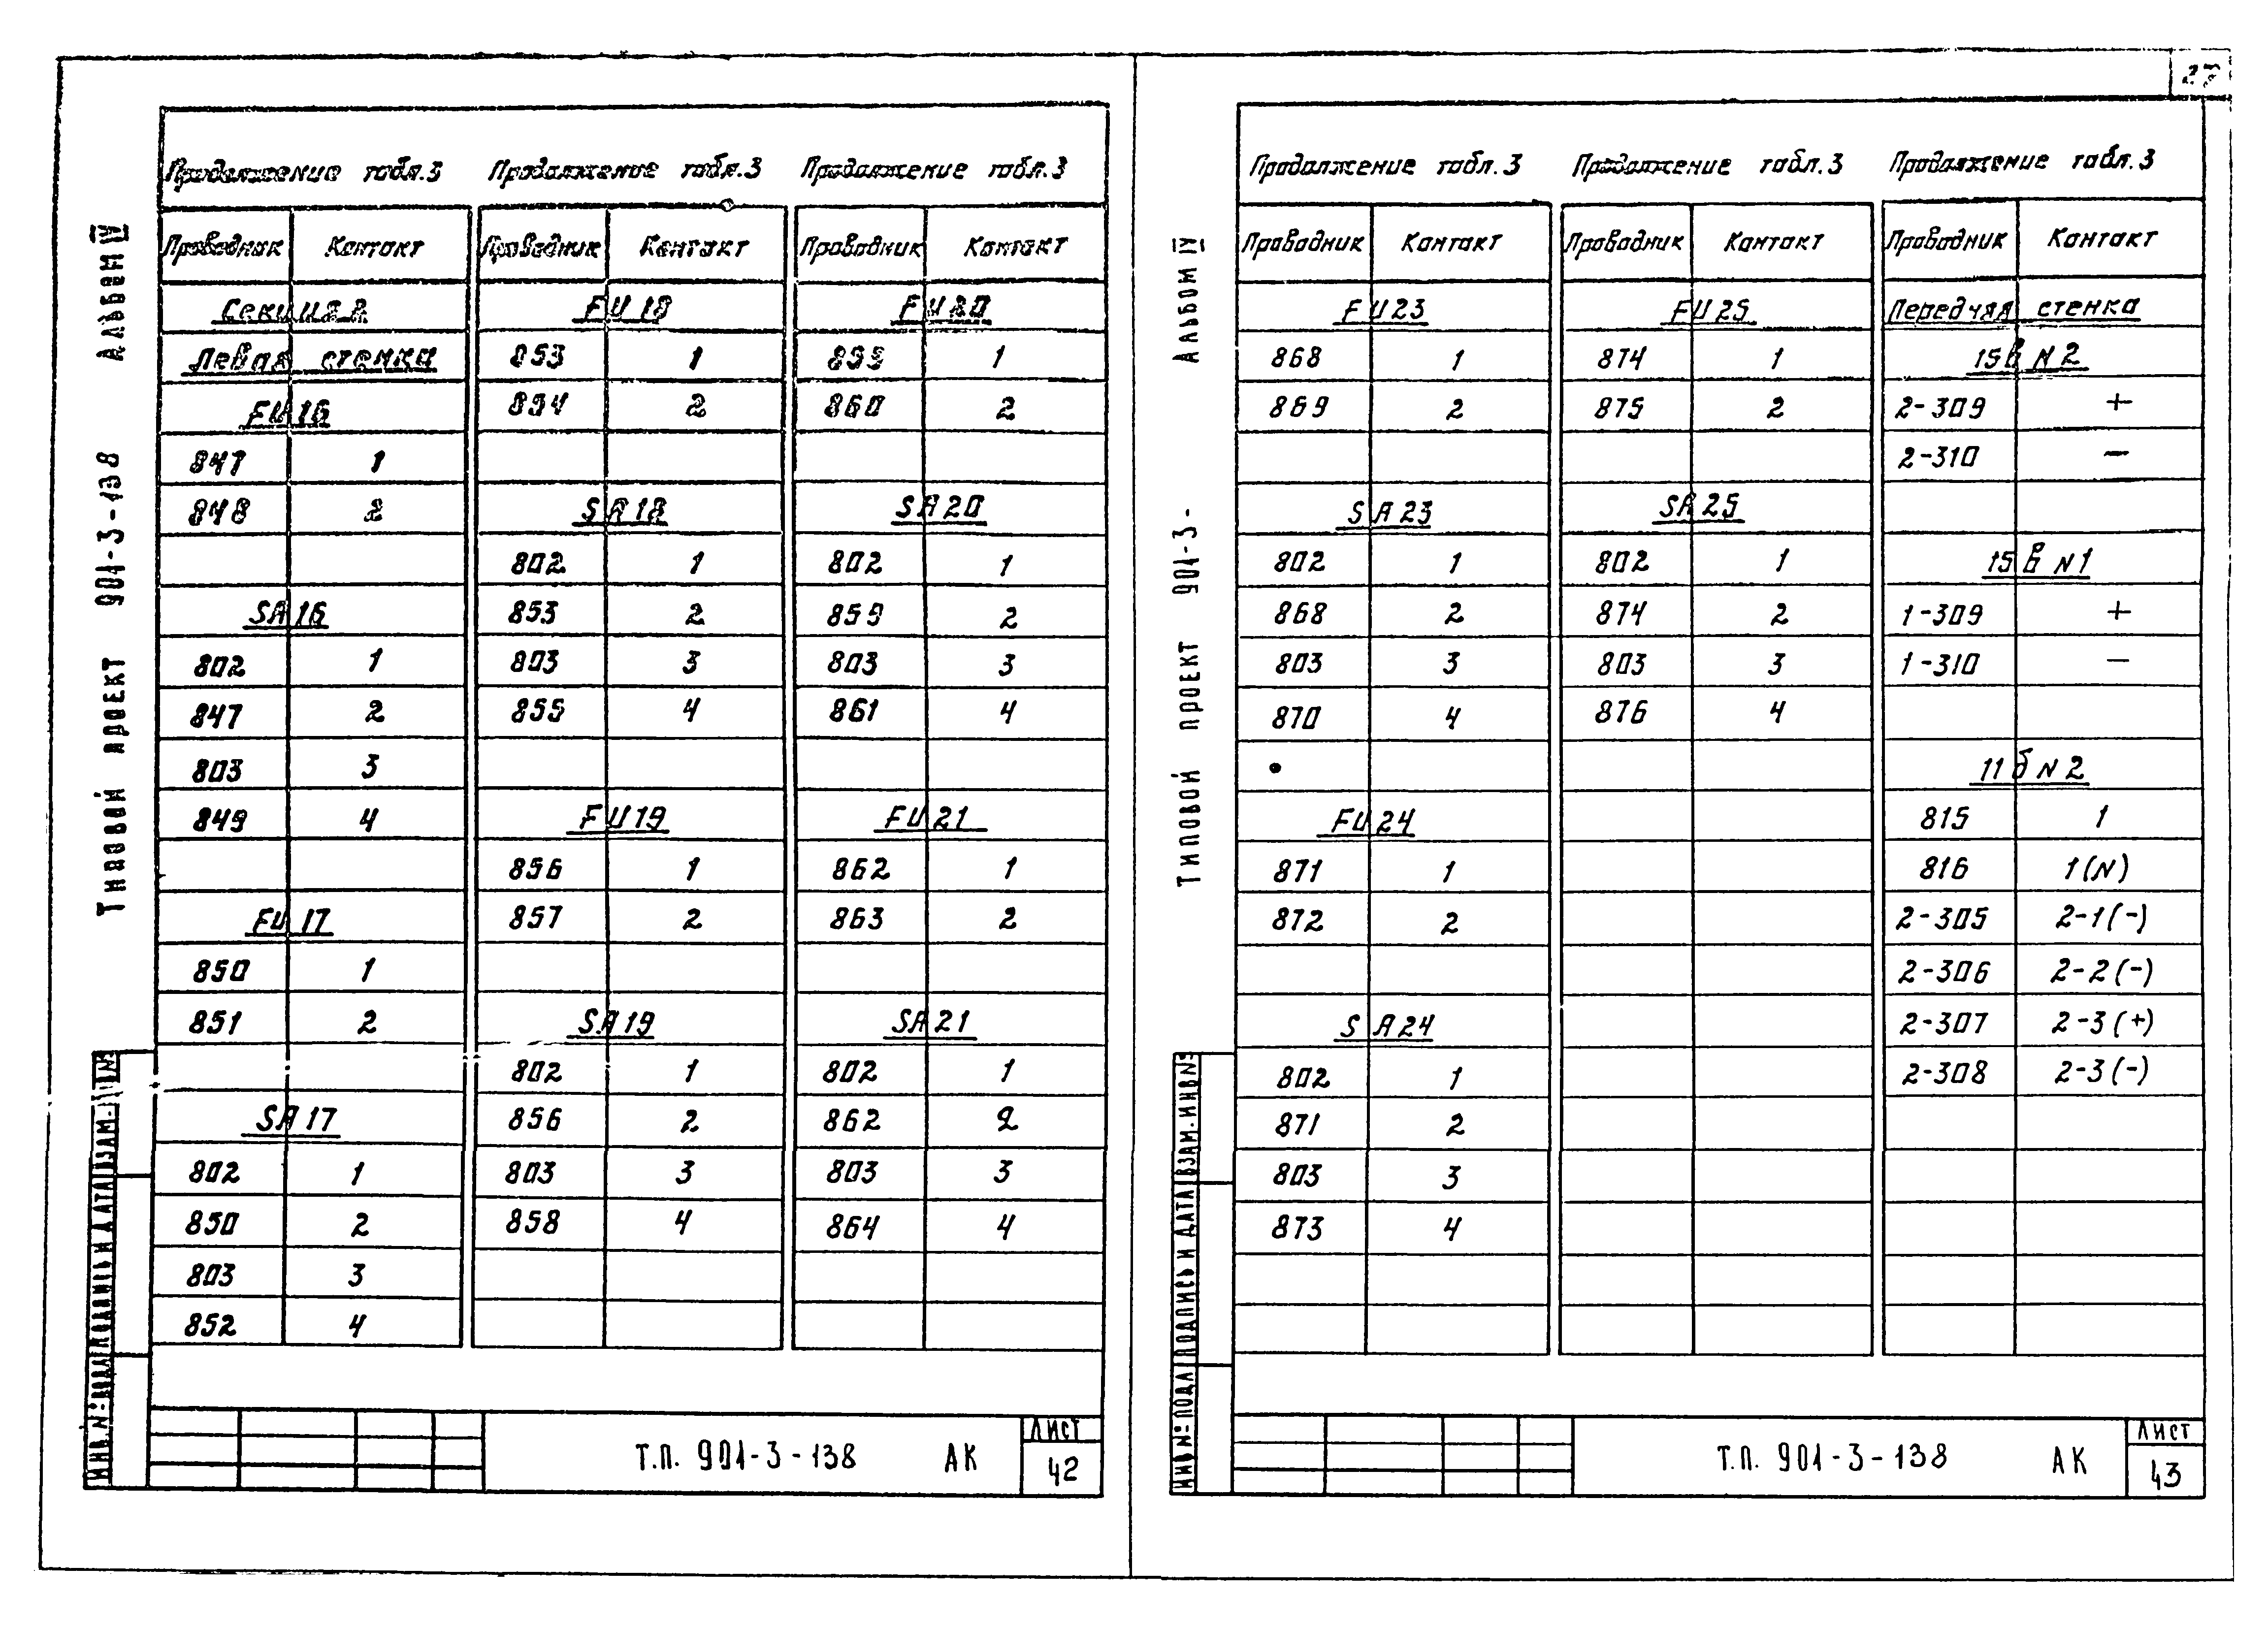 Альбом IV
Типовой проект 901-3-138
Продолжение табл.3
Проводник Контакт
Секция 2
Левая стенка
FU16
847 1
848 2
SA16
802 1
847 2
803 3
849 4
FU17
850 1
851 2
SA17
802 1
850 2
803 3
852 4
Продолжение табл.3
Проводник Контакт
FU18
853 1
854 2
SA18
802 1
853 2
803 3
855 4
FU19
856 1
857 2
SA19
802 1
856 2
803 3
858 4
Продолжение табл.3
Проводник Контакт
FU20
859 1
860 2
SA20
802 1
859 2
803 3
861 4
FU21
862 1
863 2
SA21
802 1
862 2
803 3
864 4
ИНВ.№ ПОДЛ. ПОДПИСЬ И ДАТА ВЗАМ.
Т.П. 901-3-138 АК
Лист
42
Альбом IV
Типовой проект 901-3-
Продолжение табл.3
Проводник Контакт
FU23
868 1
869 2
SA23
802 1
868 2
803 3
870 4
FU24
871 1
872 2
SA24
802 1
871 2
803 3
873 4
Продолжение табл.3
Проводник Контакт
FU25
874 1
875 2
SA25
802 1
874 2
803 3
876 4
Продолжение табл.3
Проводник Контакт
Передняя стенка
15в N2
2-309 +
2-310 −
15в N1
1-309 +
1-310 −
11б N2
815 1
816 1(N)
2-305 2-1(-)
2-306 2-2(-)
2-307 2-3(+)
2-308 2-3(-)
ИНВ.№ ПОДЛ. ПОДПИСЬ И ДАТА ВЗАМ.ИНВ.№
Т.П. 901-3-138 АК
Лист
43